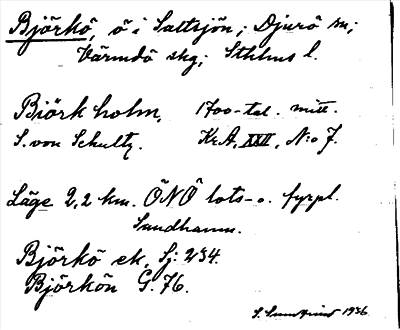 Björkö, ö i Saltsjön; Djurö sn;
Värmdö skg; Sthlms l.
Biörkholm, 1700-tal. mitt.
S. von Schultz. Kr.A, XXII, N:o 7.
Läge 2,2 km. ÖNÖ lots- o. fyrpl.
Sandhamn.
Björkö ek, Sj: 234.
Björkön G. 76.
1936